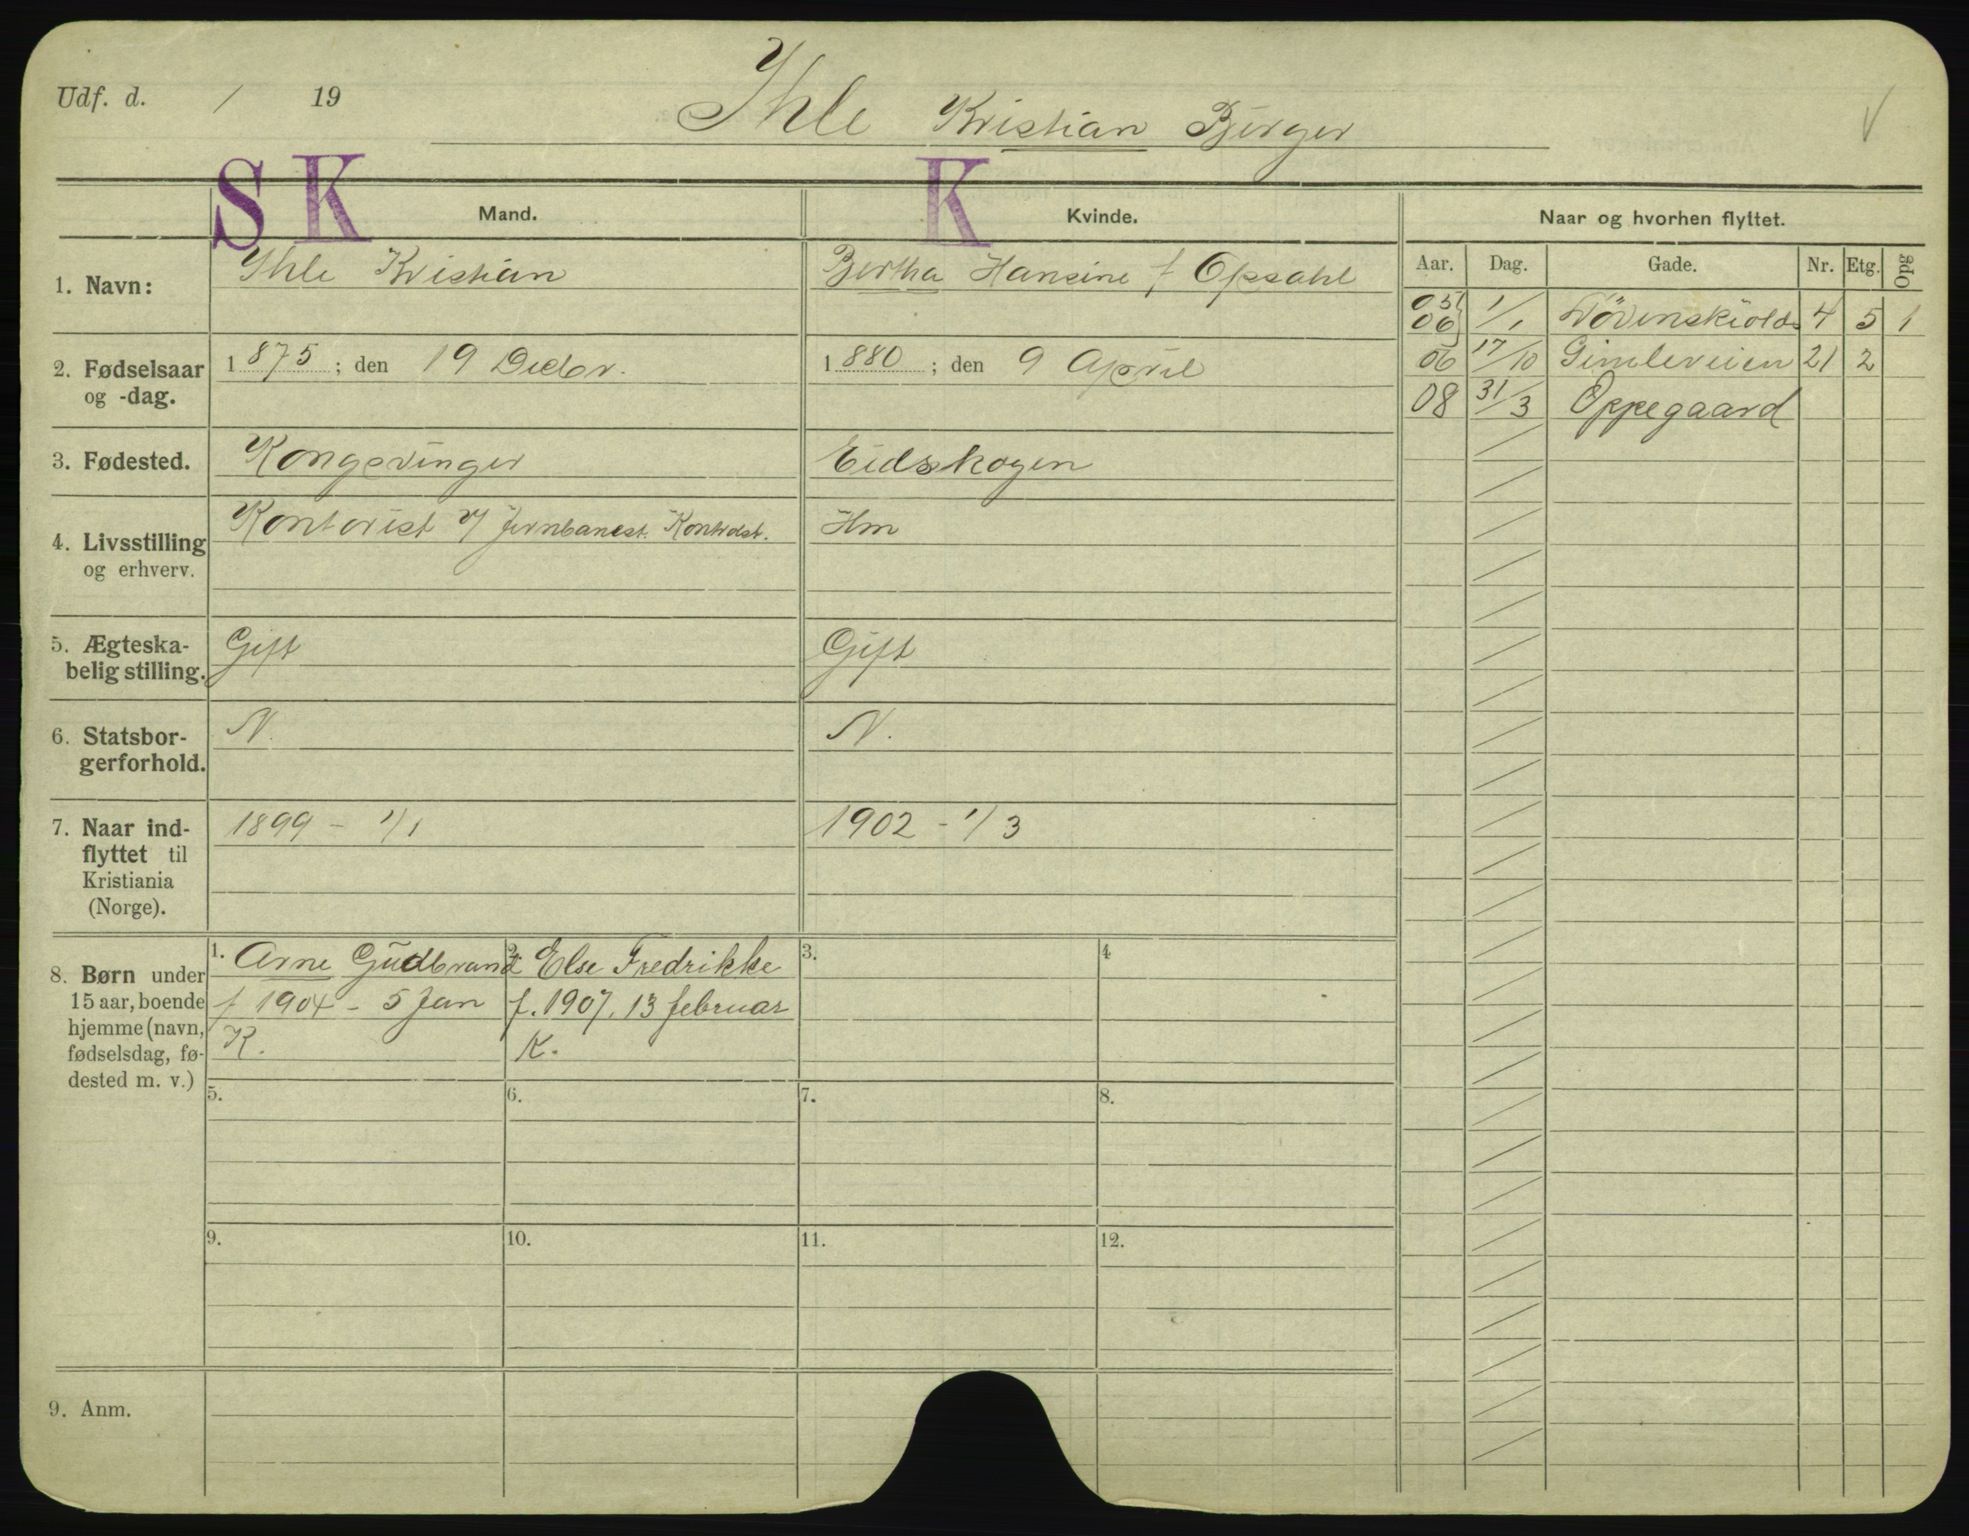 Udf. d. / 19
Ihle Kristian Birger
V
S K K
Mand. Kvinde. Naar og hvorhen flyttet.
Aar. Dag. Gade. Nr. Etg. Opg
1. Navn: Ihle Kristian Bertha Hansine f Opsahl
05 06 1/1 Løvenskiolds 4 5 1
06 17/10 Gimleveien 21 2
08 31/3 Oppegaard
2. Fødselsaar 1875; den 19 Decbr. 1880; den 9 April
og -dag.
3. Fødested. Kongsvinger Eidskogen
4. Livsstilling Kontorist v/ Jernbanest. Hm
og erhverv.
5. Ægteska- Gift Gift
belig stilling.
6. Statsbor- N. N.
gerforhold.
7. Naar ind- 1899 - 1/1 1902 - 1/3
flyttet til
Kristiania
(Norge).
8. Børn under
15 aar, boende
hjemme (navn,
fødselsdag, fø-
dested m. v.)
1. Arne Gudbrand
f 1904 - 5 Jan
K.
2. Else Fredrikke
f. 1907. 13 februar
K.
3. 4
5. 6. 7. 8.
9. 10. 11. 12.
9. Anm.